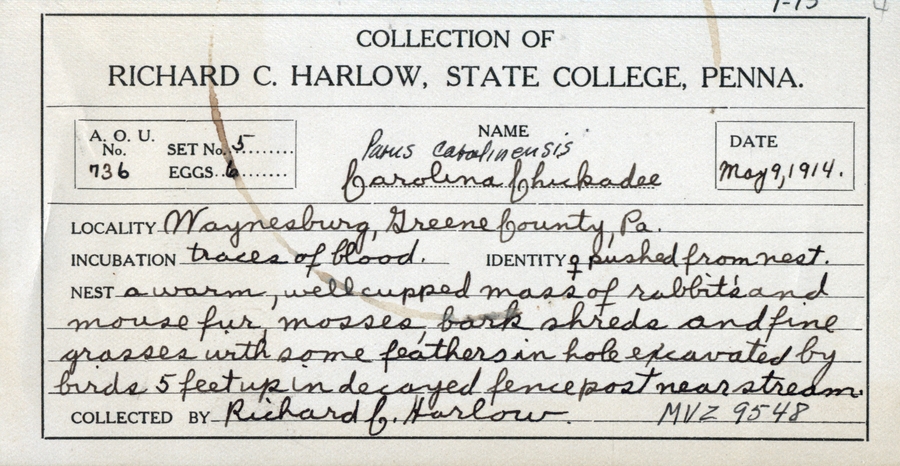 1-15
COLLECTION OF
RICHARD C. HARLOW, STATE COLLEGE, PENNA.
A. O. U. No. 736
SET No. 5
EGGS 6
NAME
Parus carolinensis
Carolina Chickadee
DATE
May 9, 1914.
LOCALITY Waynesburg, Greene County, Pa.
INCUBATION traces of blood. IDENTITY ♀ pushed from nest.
NEST a warm, well cupped mass of rabbit's and
mouse fur, mosses, bark shreds and fine
grasses with some feathers in hole excavated by
birds 5 feet up in decayed fence post near stream.
COLLECTED BY Richard C. Harlow. MVZ 9548